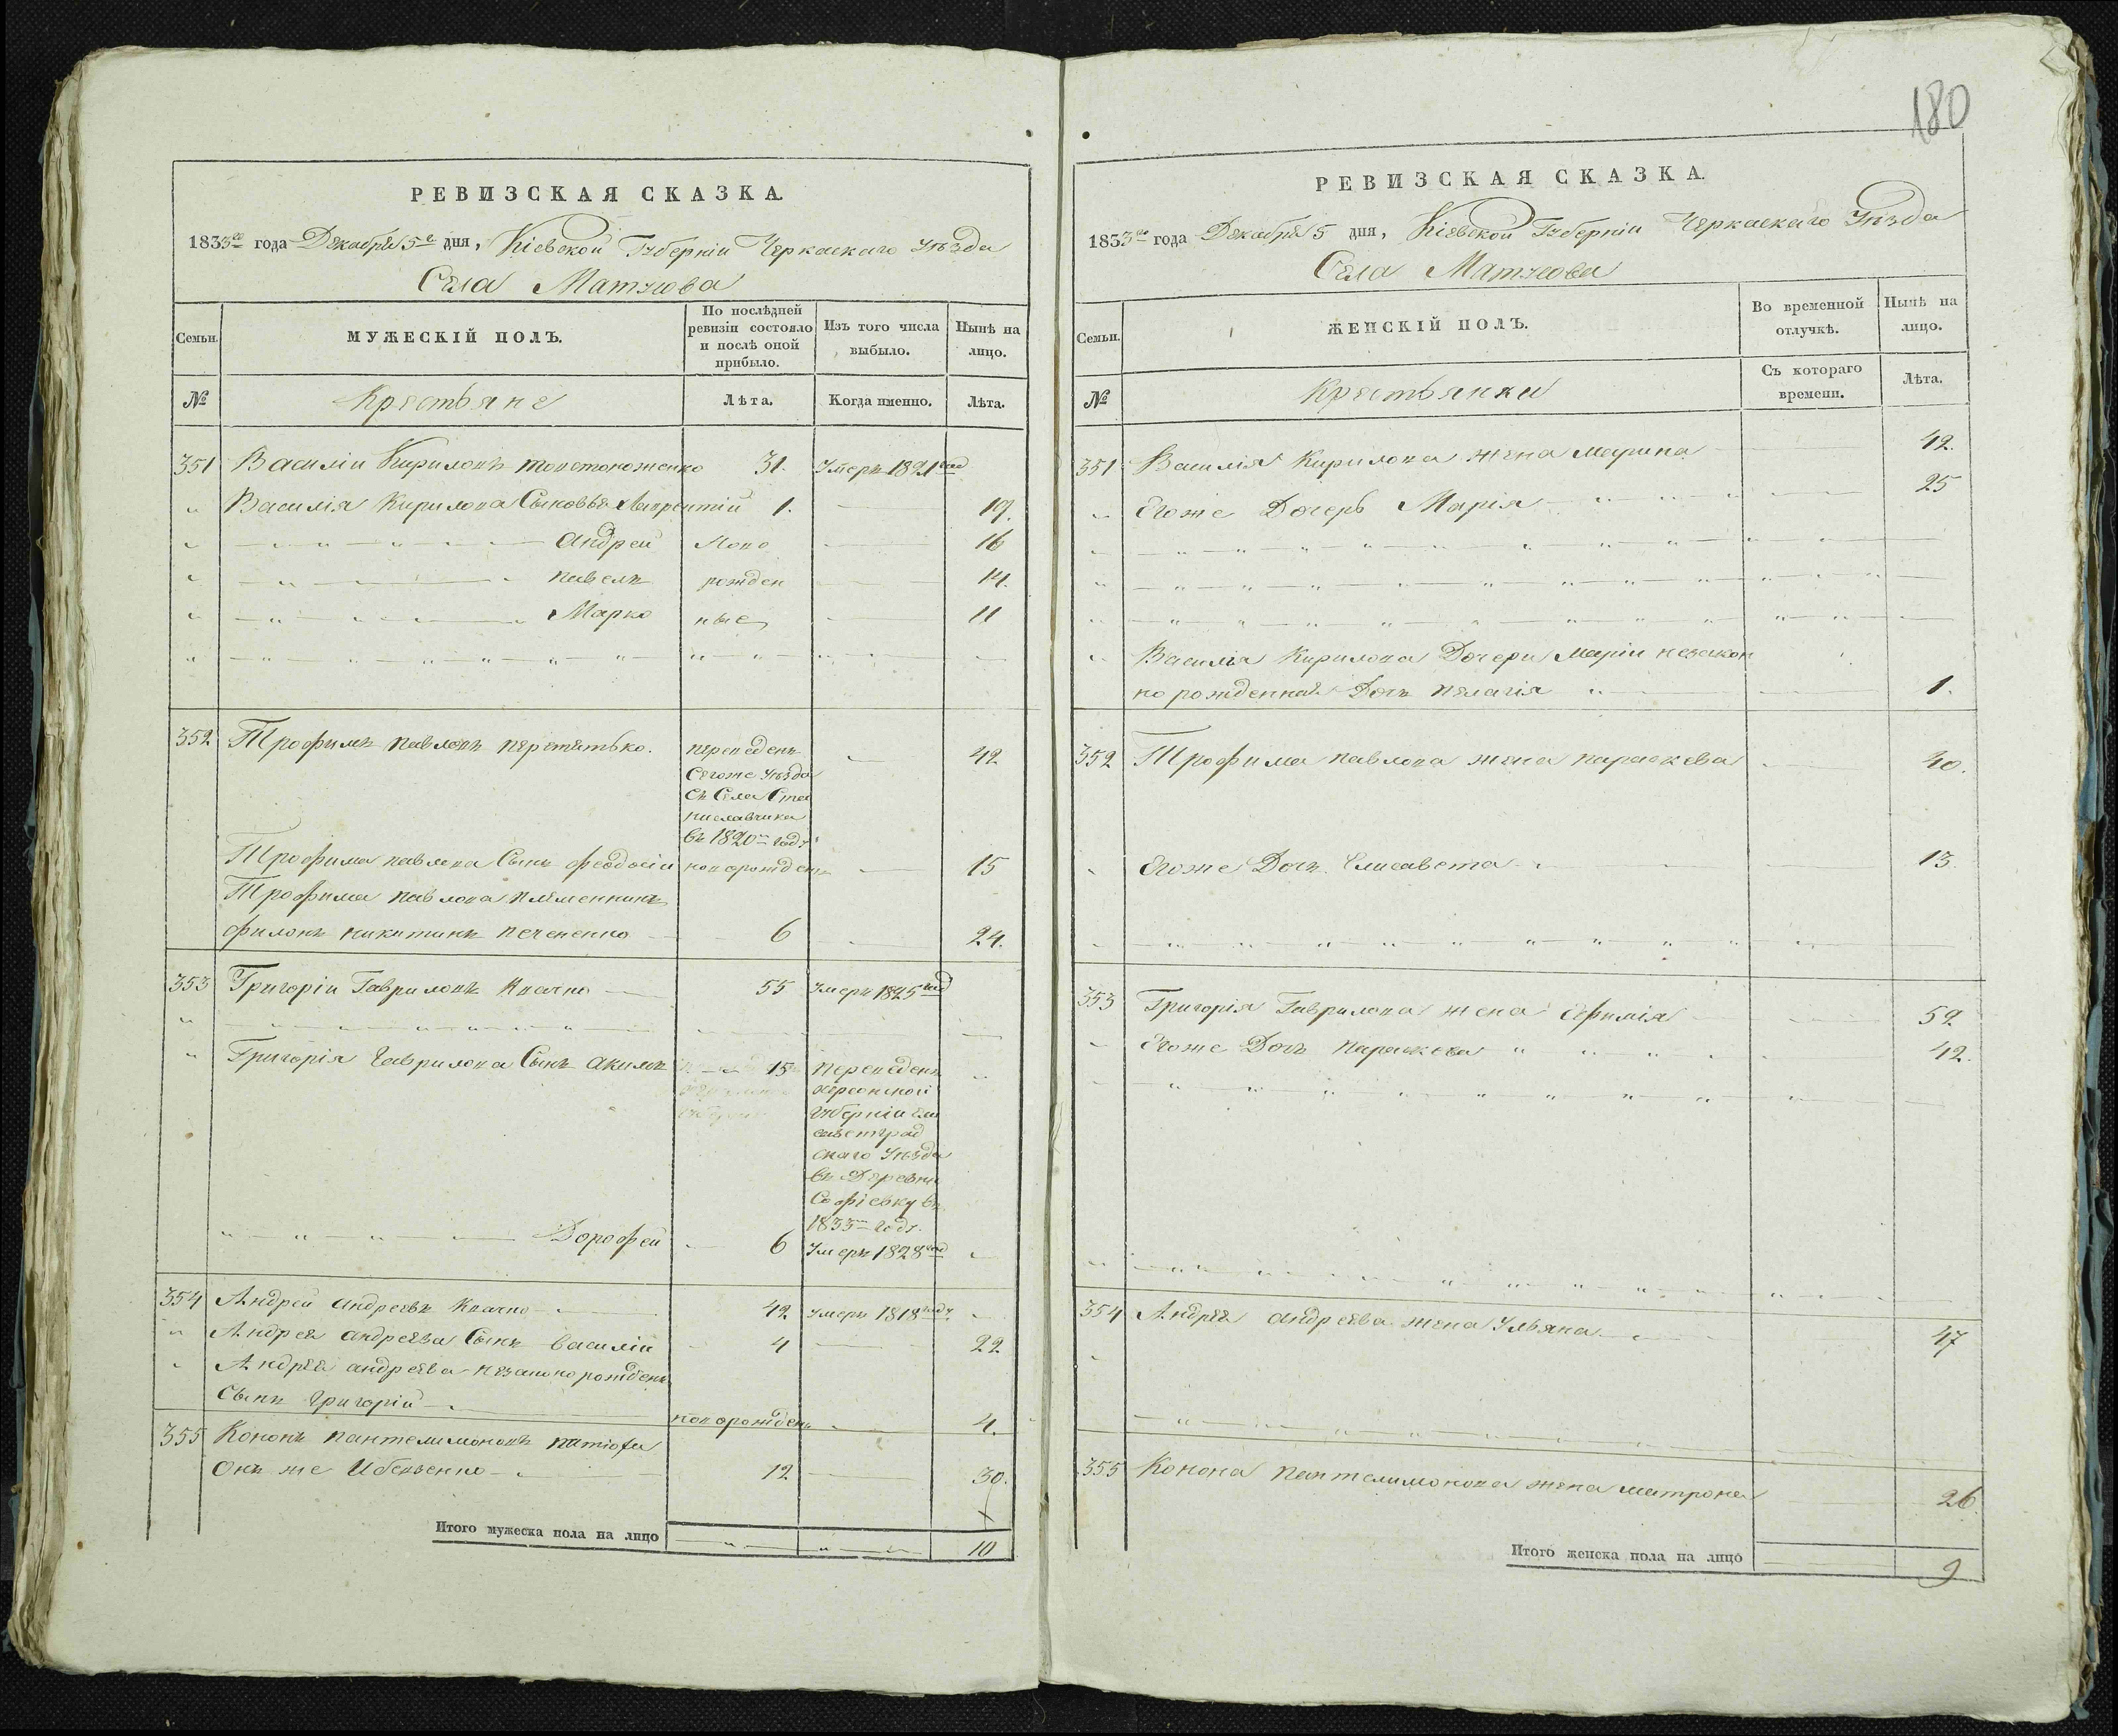 РЕВИЗСКАЯ СКАЗКА.
1833го года Декабря 5е дня, Кіевской Губерніи Черкаскаго Уѣзда
Села Матусова
Семьи.
МУЖЕСКІЙ ПОЛЪ.
По послѣдней
ревизіи состояло
и послѣ оной
прибыло.
Изъ того числа
выбыло.
Нынѣ на
лицо.
№
Крестьяне
Лѣта.
Когда именно.
Лѣта.
351 Василіи Кириловъ 31. Умеръ 1821
" Василія Кирилова Сыновья Лаврентій 1. 19.
Андрей Ново 16
Павелъ рожден 14.
Марко ные 11
352 Трофимъ Павловъ переведенъ 42
Сегоже Уѣзда
Съ Села Ста
ниславчика
въ 1820 году
Трофима Павлова Сынъ Феодосіи новорожденъ 15
Трофима Павлова племенникъ
Филонъ Никитинъ 6 24.
353 Григоріи Гавриловъ Квачко 55 Умеръ 1825
" Григорія Гаврилова Сынъ Акимъ 15 Переведенъ
Херсонской
Губерніи Ели
саветград
скаго Уѣзда
въ Деревню
Софіевку въ
1833 году.
Дорофей 6 Умеръ 1828
354 Андрей Андреевъ Квачко 42 Умеръ 1818 году.
" Андрея Андреева Сынъ Василіи 4 22
" Андрея Андреева незаконорожденъ
Сынъ Григорій новорожденъ 4.
355 Кононъ Пантелимоновъ
Онъ же 12 30.
Итого мужеска пола на лицо 10
180
РЕВИЗСКАЯ СКАЗКА.
1833го года Декабря 5 дня, Кіевской Губерніи Черкаскаго Уѣзда
Села Матусова
Семьи.
ЖЕНСКІЙ ПОЛЪ.
Во временной
отлучкѣ.
Нынѣ на
лицо.
№
Крестьянки
Съ котораго
времени.
Лѣта.
351 Василія Кирилова жена Марина 42.
" Егоже Дочерь Марія 25
" Василія Кирилова Дочери Маріи незакон
но рожденная Дочь Пелагія 1.
352 Трофима Павлова жена Параскева 40.
Егоже Дочь Елисавета 13.
353 Григорія Гаврилова жена Ефимія 59
Егоже Дочь Параскева 12.
354 Андрея Андреева жена Ульяна 47
355 Конона Пантелимонова жена Матрона 26.
Итого женска пола на лицо 9